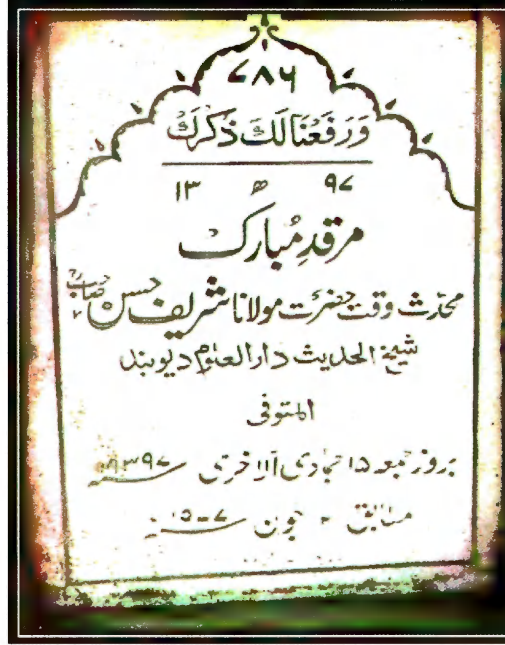 ۷۸۶
وَرَفَعْنَا لَكَ ذِكْرَكَ
۱۳ ھ ۹۷
مرقدِ مُبارک
محدّث وقت حضرت مولانا شریف حسن صاحب
شیخ الحدیث دار العلوم دیوبند
المتوفی
بروز جمعہ ۱۵ جمادی الاخریٰ ۱۳۹۷ھ
مطابق جون